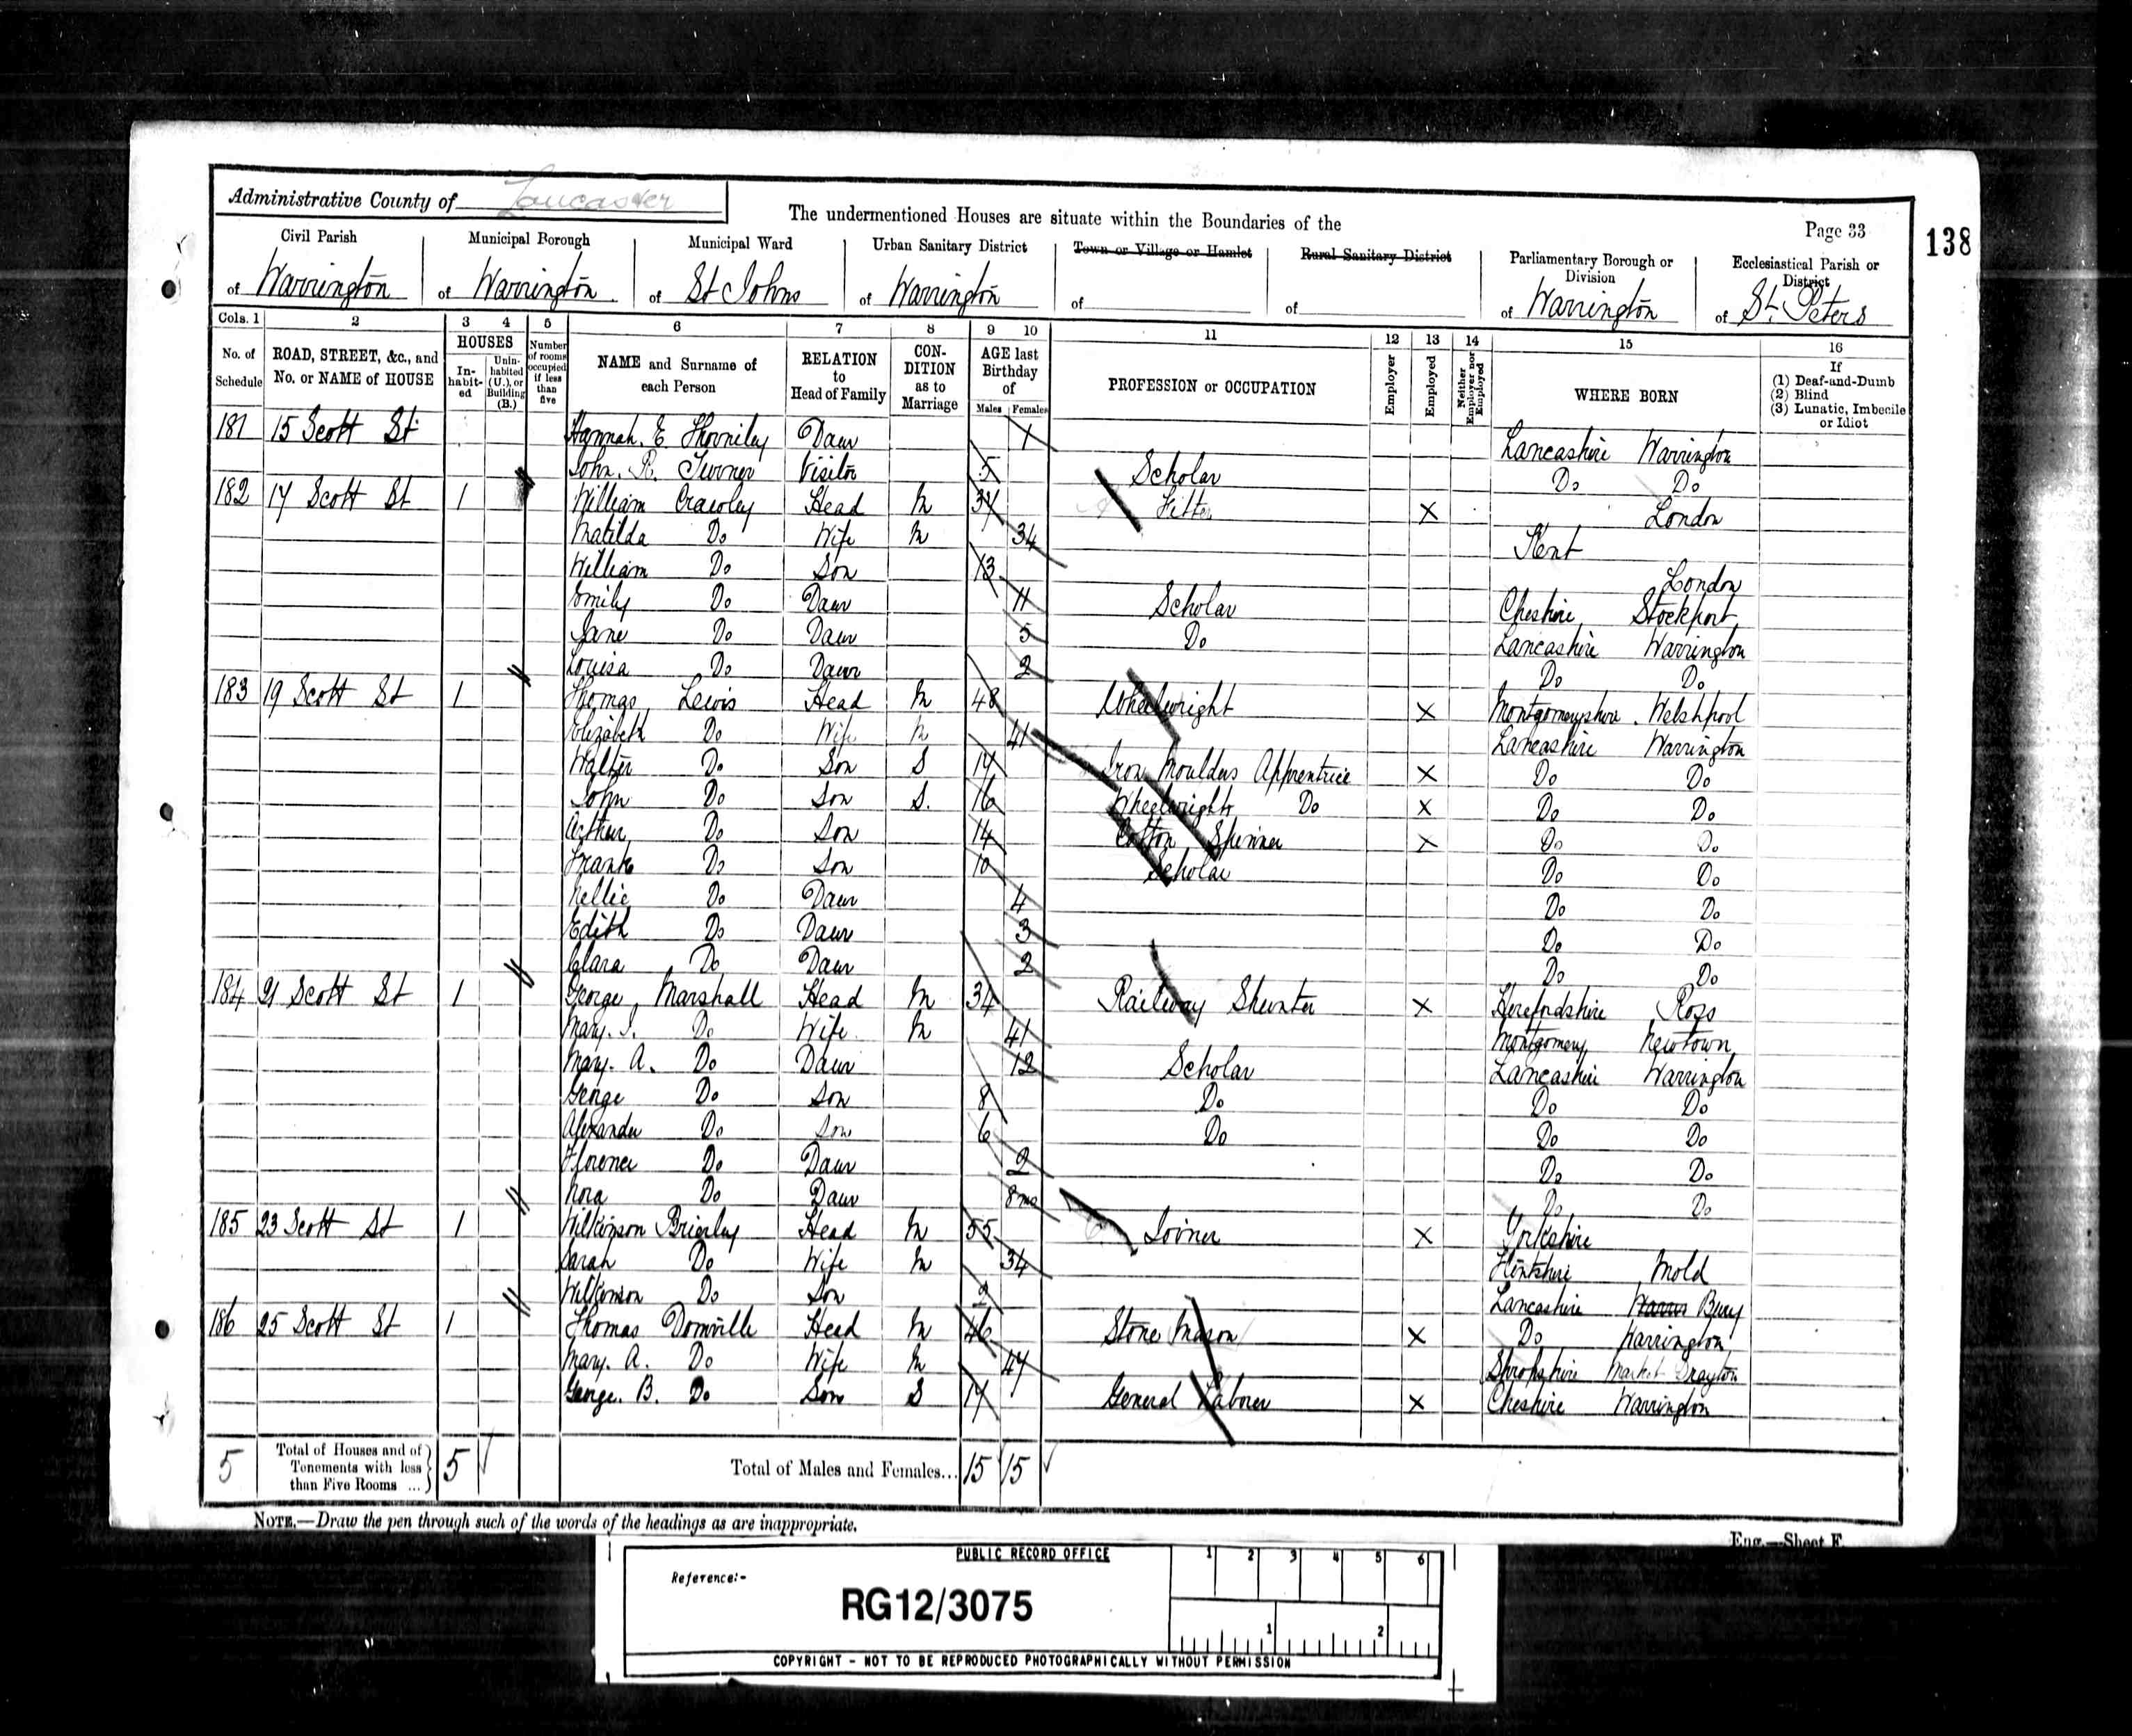 Administrative County of Lancaster
The undermentioned Houses are situate within the Boundaries of the
Page 33
138
Civil Parish
of Warrington
Municipal Borough
of Warrington
Municipal Ward
of St Johns
Urban Sanitary District
of Warrington
Town or Village or Hamlet
of
Rural Sanitary District
of
Parliamentary Borough or Division
of Warrington
Ecclesiastical Parish or District
of St. Peters
Cols. 1 2 3 4 5 6 7 8 9 10 11 12 13 14 15 16
No. of Schedule
ROAD, STREET, &c., and No. or NAME of HOUSE
HOUSES
In-habit-ed
Unin-habited (U.), or Building (B.)
Number of rooms occupied if less than five
NAME and Surname of each Person
RELATION to Head of Family
CON-DITION as to Marriage
AGE last Birthday of
Males Females
PROFESSION or OCCUPATION
Employer
Employed
Neither Employer nor Employed
WHERE BORN
If
(1) Deaf-and-Dumb
(2) Blind
(3) Lunatic, Imbecile or Idiot
181 15 Scott St Hannah. E Thorniley Daur 1 Lancashire Warrington
John. R. Turner Visitor 5 Scholar Do Do
182 17 Scott St 1 William Crawley Head M 37 Fitter X London
Matilda Do Wife M 34 Kent
William Do Son 13 London
Emily Do Daur 11 Scholar Cheshire Stockport
Jane Do Daur 5 Do Lancashire Warrington
Louisa Do Daur 2 Do Do
183 19 Scott St 1 Thomas Lewis Head M 48 Wheelwright X Montgomeryshire Welshpool
Elizabeth Do Wife M 41 Lancashire Warrington
Walter Do Son S 17 Iron Moulders Apprentice X Do Do
John Do Son S. 16 Wheelwright Do X Do Do
Arthur Do Son 14 Cotton Spinner X Do Do
Frank Do Son 10 Scholar Do Do
Nellie Do Daur 4 Do Do
Edith Do Daur 3 Do Do
Clara Do Daur 2 Do Do
184 21 Scott St 1 George Marshall Head M 34 Railway Shunter X Herefordshire Ross
Mary. Do Wife M 41 Montgomery Newtown
Mary. A. Do Daur 12 Scholar Lancashire Warrington
George Do Son 8 Do Do Do
Alexander Do Son 6 Do Do Do
Florence Do Daur 2 Do Do
Nora Do Daur 8 mo Do Do
185 23 Scott St 1 Wilkinson Brierley Head M 55 Joiner X Yorkshire
Sarah Do Wife M 34 Flintshire Mold
Wilkinson Do Son 2 Lancashire Bury
186 25 Scott St 1 Thomas Domville Head M 46 Stone Mason X Do Warrington
Mary. A. Do Wife M 47 Shropshire Market Drayton
George. B. Do Son S 17 General Laborer X Cheshire Warrington
5 Total of Houses and of Tenements with less than Five Rooms ... 5
Total of Males and Females... 15 15
NOTE.—Draw the pen through such of the words of the headings as are inappropriate.
Eng.—Sheet F
PUBLIC RECORD OFFICE
1 2 3 4 5 6
Reference:-
RG12/3075
1 2
COPYRIGHT - NOT TO BE REPRODUCED PHOTOGRAPHICALLY WITHOUT PERMISSION